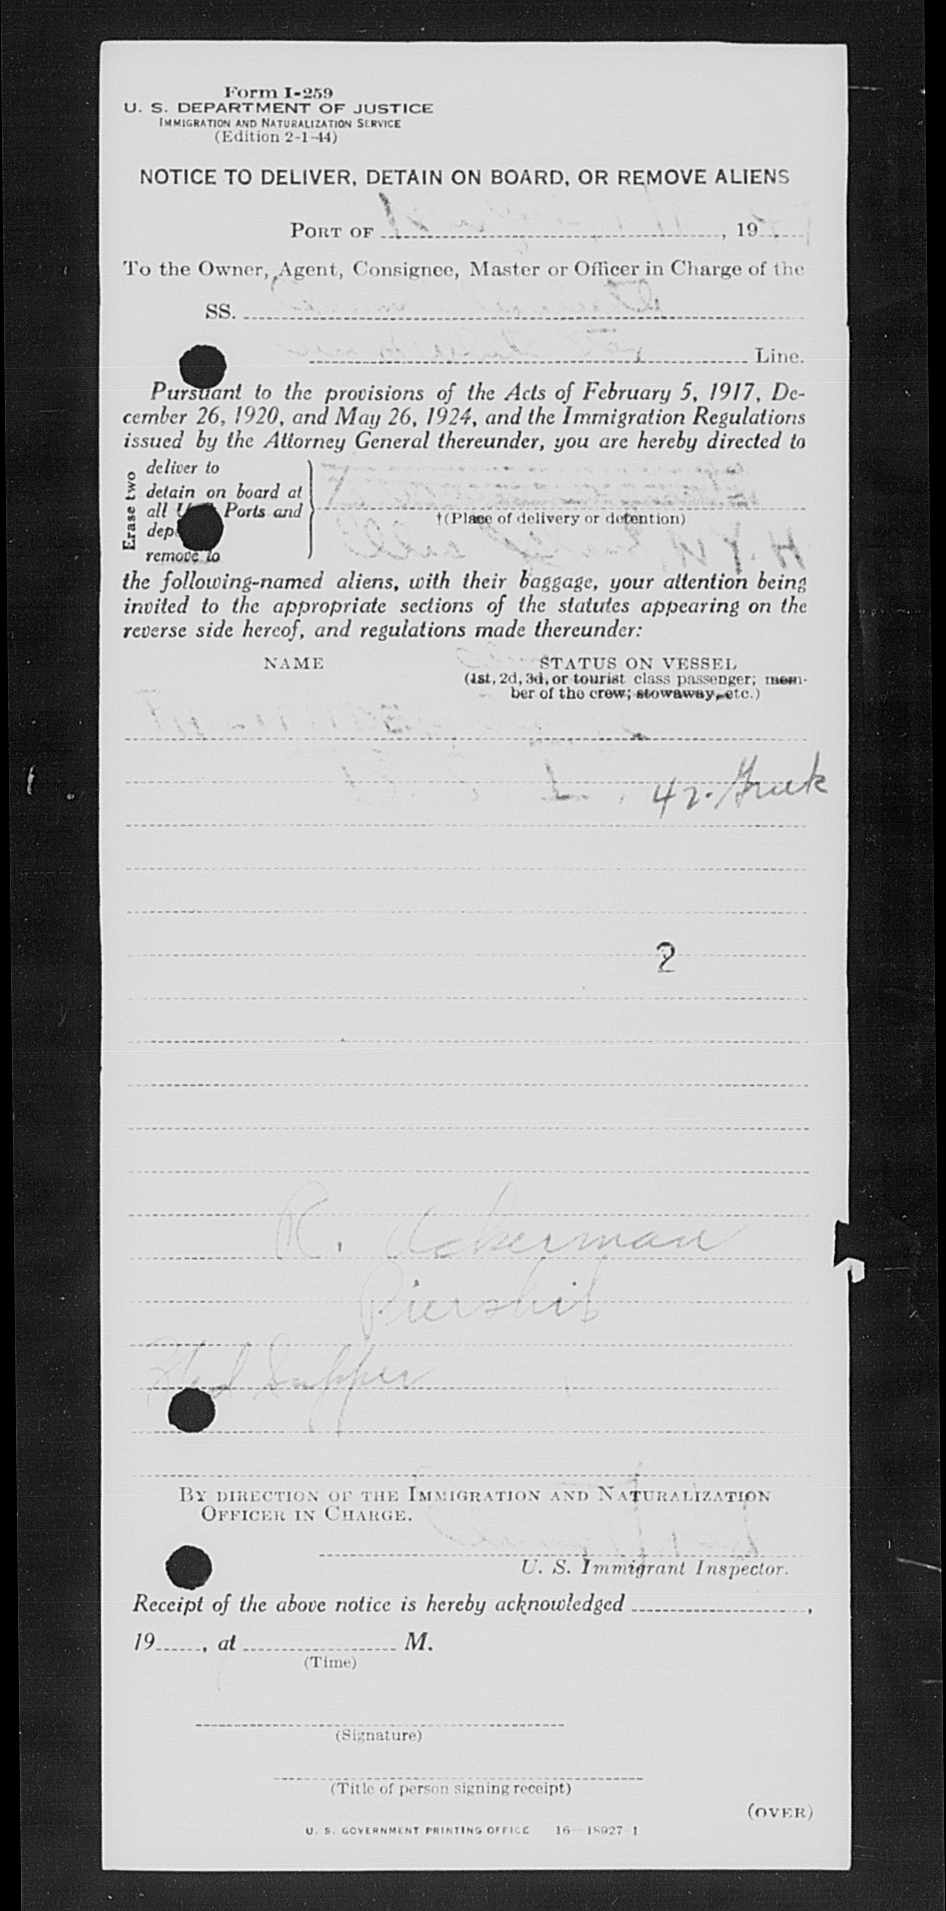 Form I-259
U. S. DEPARTMENT OF JUSTICE
IMMIGRATION AND NATURALIZATION SERVICE
(Edition 2-1-44)
NOTICE TO DELIVER, DETAIN ON BOARD, OR REMOVE ALIENS
PORT OF , 19
To the Owner, Agent, Consignee, Master or Officer in Charge of the
SS.
Line.
Pursuant to the provisions of the Acts of February 5, 1917, De-
cember 26, 1920, and May 26, 1924, and the Immigration Regulations
issued by the Attorney General thereunder, you are hereby directed to
Erase two
deliver to
detain on board at
all Ports and
remove to
†(Place of delivery or detention)
the following-named aliens, with their baggage, your attention being
invited to the appropriate sections of the statutes appearing on the
reverse side hereof, and regulations made thereunder:
NAME STATUS ON VESSEL
(1st, 2d, 3d, or tourist class passenger; mem-
ber of the crew; stowaway, etc.)
42. Greek
2
R. Ackerman
Had Supper
BY DIRECTION OF THE IMMIGRATION AND NATURALIZATION
OFFICER IN CHARGE.
U. S. Immigrant Inspector.
Receipt of the above notice is hereby acknowledged ,
19 , at M.
(Time)
(Signature)
(Title of person signing receipt)
(OVER)
U. S. GOVERNMENT PRINTING OFFICE 16—18927-1